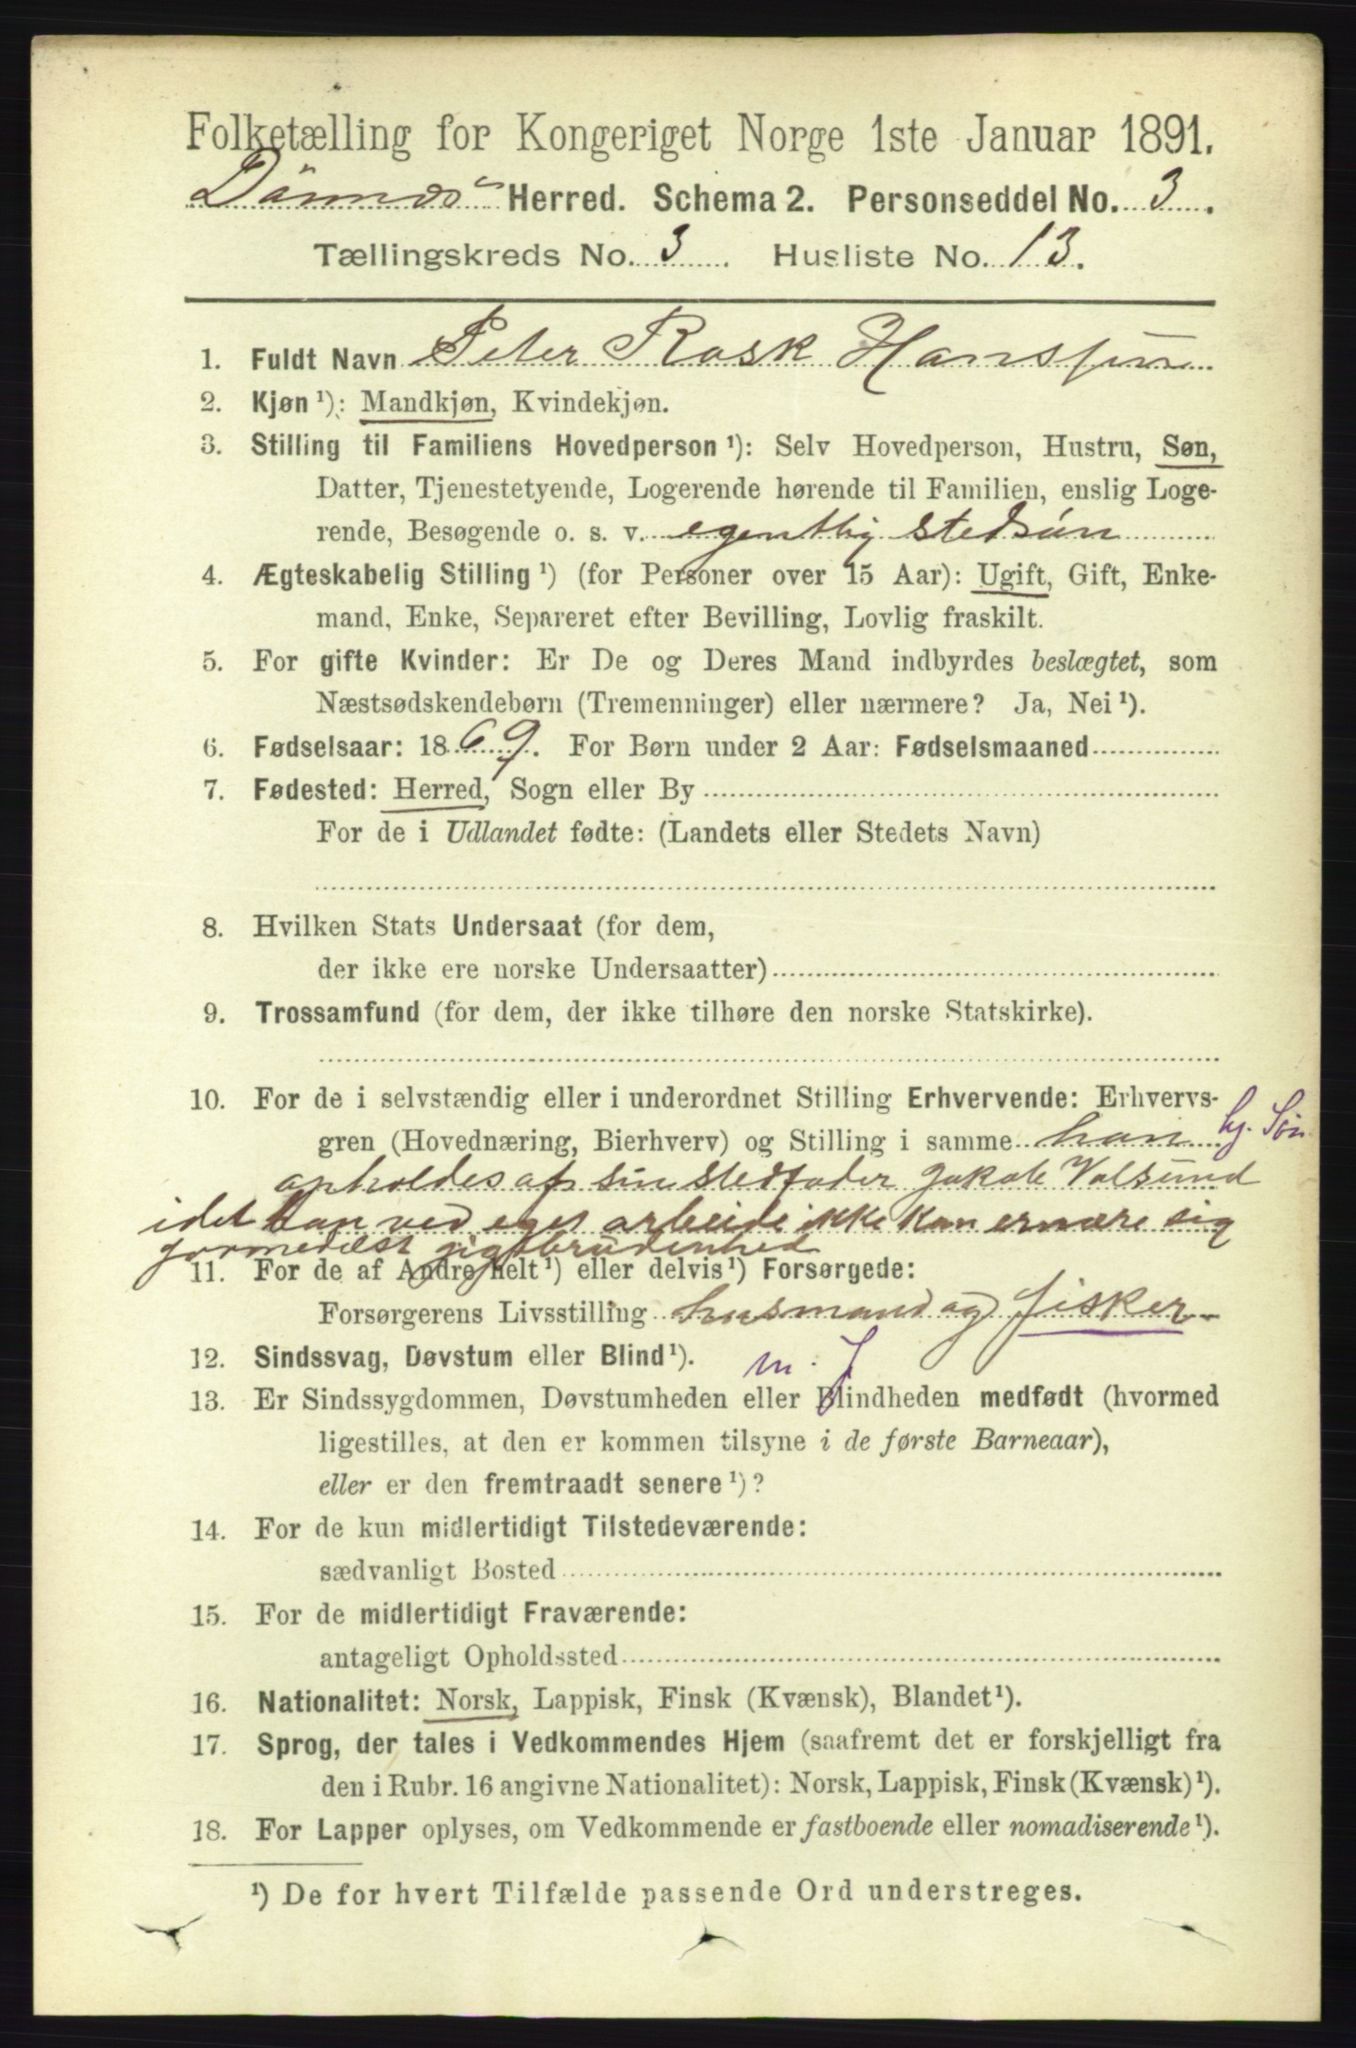 Folketælling for Kongeriget Norge 1ste Januar 1891.
Dönnes Herred. Schema 2. Personseddel No. 3.
Tællingskreds No. 3. Husliste No. 13.
1. Fuldt Navn Peter Rask Hans
2. Kjøn ¹): Mandkjøn, Kvindekjøn.
3. Stilling til Familiens Hovedperson ¹): Selv Hovedperson, Hustru, Søn,
Datter, Tjenestetyende, Logerende hørende til Familien, enslig Loge-
rende, Besøgende o. s. v. egentlig stedsøn
4. Ægteskabelig Stilling ¹) (for Personer over 15 Aar): Ugift, Gift, Enke-
mand, Enke, Separeret efter Bevilling, Lovlig fraskilt.
5. For gifte Kvinder: Er De og Deres Mand indbyrdes beslægtet, som
Næstsødskendebørn (Tremenninger) eller nærmere? Ja, Nei ¹).
6. Fødselsaar: 1869. For Børn under 2 Aar: Fødselsmaaned
7. Fødested: Herred, Sogn eller By
For de i Udlandet fødte: (Landets eller Stedets Navn)
8. Hvilken Stats Undersaat (for dem,
der ikke ere norske Undersaatter)
9. Trossamfund (for dem, der ikke tilhøre den norske Statskirke).
10. For de i selvstændig eller i underordnet Stilling Erhvervende: Erhvervs-
gren (Hovednæring, Bierhverv) og Stilling i samme han hj. Søn
opholdes af sin stedfader Jakob Valsund
idet han ved eget arbeide ikke kan ernære sig
formedelst gigtbrudenhed
11. For de af Andre helt ¹) eller delvis ¹) Forsørgede:
Forsørgerens Livsstilling husmand og fisker
12. Sindssvag, Døvstum eller Blind ¹).
m. f
13. Er Sindssygdommen, Døvstumheden eller Blindheden medfødt (hvormed
ligestilles, at den er kommen tilsyne i de første Barneaar),
eller er den fremtraadt senere ¹)?
14. For de kun midlertidigt Tilstedeværende:
sædvanligt Bosted
15. For de midlertidigt Fraværende:
antageligt Opholdssted
16. Nationalitet: Norsk, Lappisk, Finsk (Kvænsk), Blandet ¹).
17. Sprog, der tales i Vedkommendes Hjem (saafremt det er forskjelligt fra
den i Rubr. 16 angivne Nationalitet): Norsk, Lappisk, Finsk (Kvænsk) ¹).
18. For Lapper oplyses, om Vedkommende er fastboende eller nomadiserende ¹).
¹) De for hvert Tilfælde passende Ord understreges.